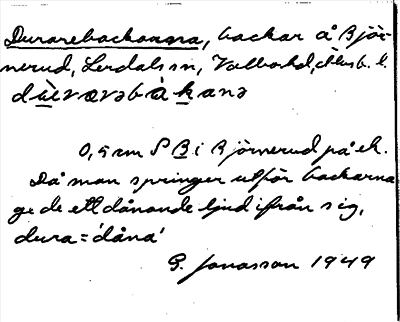 Durarebackarna, backar å Björ-
nerud, Lerdals sn, Valbohd, Älvsb. l.
dùrarəbàkanə
0,5 cm S B i Björnerud på ek.
Då man springer utför backarna
ge de ett dånande ljud ifrån sig,
dura = 'dåna'
G. Jonasson 1949